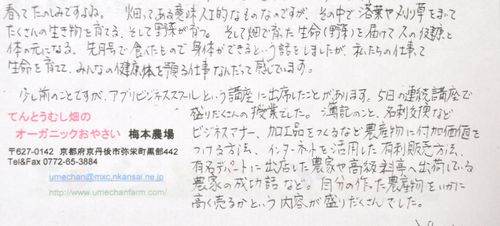 春でたのしみですよね。 畑ってある意味人工的なものなのですが、その中で落葉や刈り草をまいて
たくさんの生き物を育てる、そして野菜が育つ。 そして畑で育った生命(野菜)を届けて人の健康と
体の元になる。 先月号で食べたもので身体ができるという話をしましたが、私たちの仕事って
生命を育てて、みんなの健康体を預る仕事なんだって感じています。
少し前のことですが、アグリビジネススクールという講座に出席したことがあります。5日の連続講座で
盛りだくさんの授業でした。 簿記のこと、名刺交換など
ビジネスマナー、加工品をつくるなど農産物に付加価値を
つける方法、インターネットを活用した有利販売方法、
有名デパートに出店した農家や高級料亭へ出荷している
農家の成功話など。自分の作った農産物をいかに
高く売るかという内容が盛りだくさんでした。
てんとうむし畑の
オーガニックおやさい 梅本農場
〒627-0142 京都府京丹後市弥栄町黒部442
Tel&Fax 0772-65-3884
umechan@mxc.nkansai.ne.jp
http://www.umechanfarm.com/